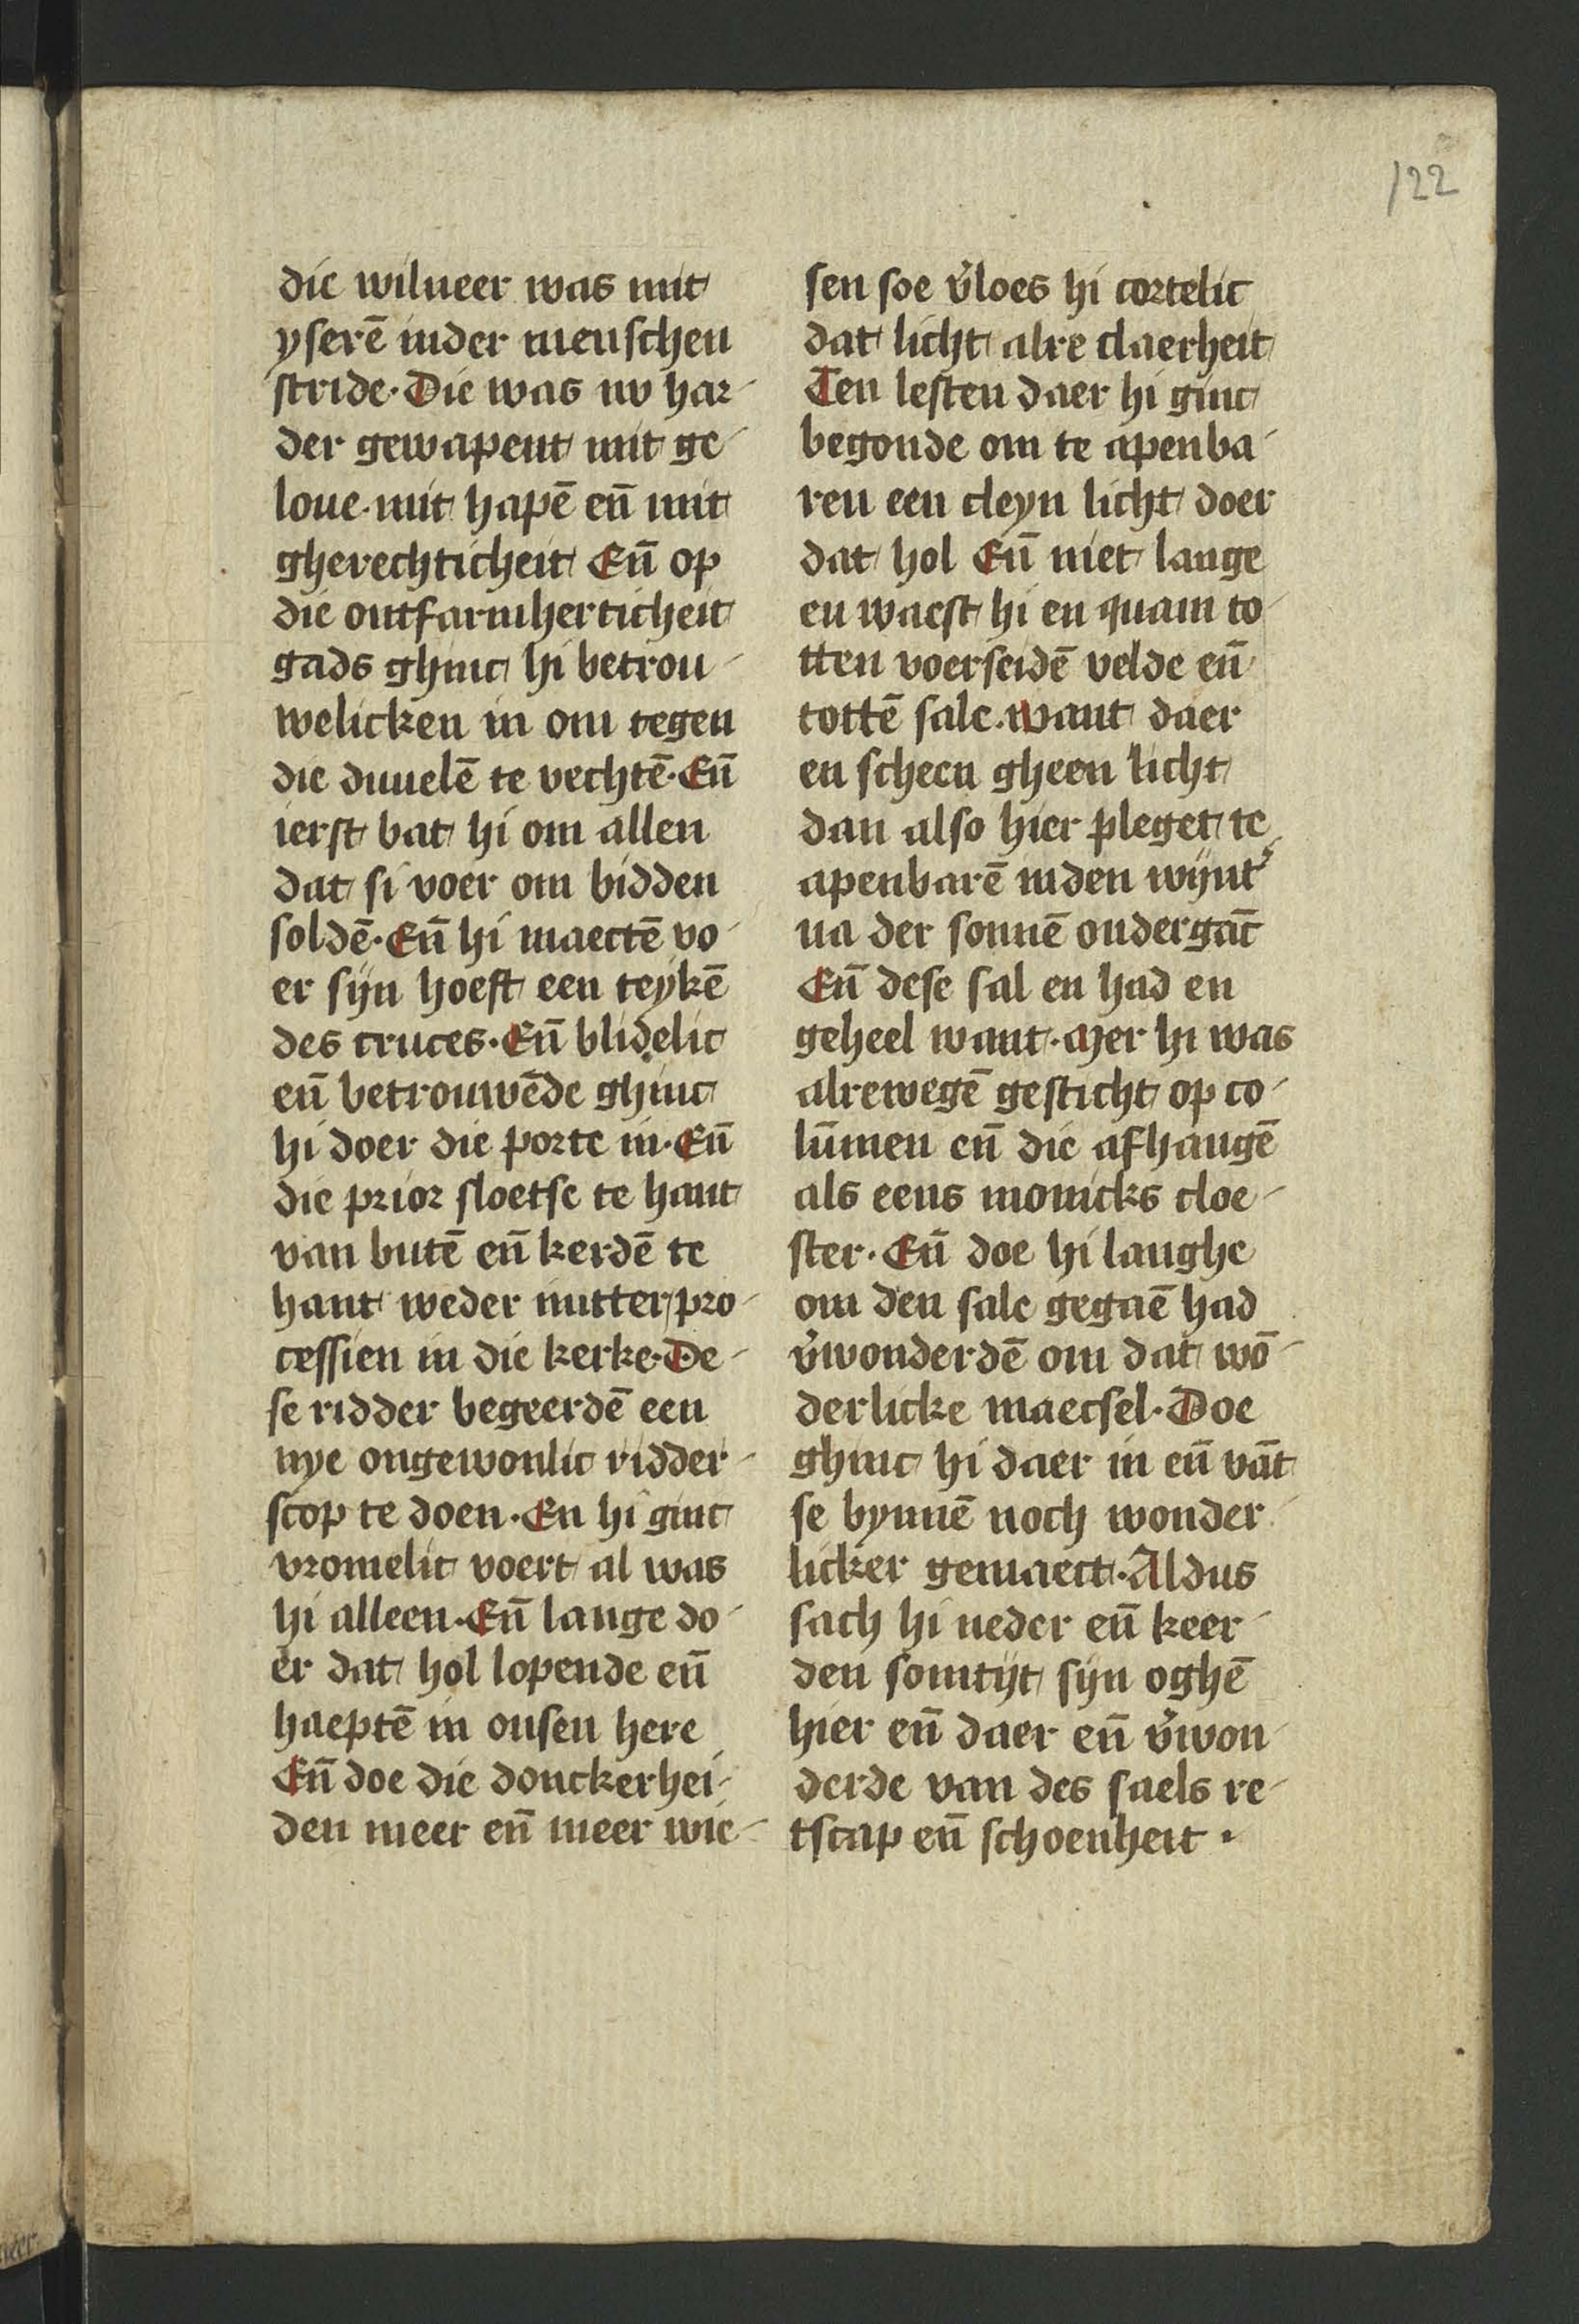 122
die wilneer was mit
yserē inder menschen
stride. Die was nv har-
der gewapent mit ge-
loue. mit hapē eñ mit
gherechticheit Eñ op
die ontfarmherticheit
gads ghinc hi betrou-
welicken in om tegen
die duuelē te vechtē. Eñ
ierst bat hi om allen
dat si voer om bidden
soldē. Eñ hi maectē vo-
er sijn hoeft een teykē
des cruces. Eñ blidelic
eñ betrouwēde ghinc
hi doer die porte in. Eñ
die prior sloetse te hant
van butē eñ kerdē te
hant weder mitter pro-
cessien in die kerke. De-
se ridder begeerdē een
nye ongewonlic ridder-
scop te doen. En hi ginc
vromelic voert al was
hi alleen. Eñ lange do-
er dat hol lopende eñ
haeptē in onsen here
Eñ doe die donckerhei-
den meer eñ meer wie-
sen soe v̉loes hi cortelic
dat licht alre claerheit
Ten lesten daer hi ginc
begonde om te apenba-
ren een cleyn licht doer
dat hol Eñ niet lange
en waest hi en quam to-
tten voerseidē velde eñ
tottē sale. want daer
en scheen gheen licht
dan also hier pleget te
apenbarē inden wijnt̉
na der sonnē ondergāt
Eñ dese sal en had en
geheel want. Mer hi was
alrewegē gesticht op co-
lūmen eñ die afhangē
als eens monicks cloe-
ster. Eñ doe hi langhe
om den sale gegaē had
v̉wonderdē om dat wō-
derlicke maecsel. Doe
ghinc hi daer in eñ vāt
se bynnē noch wonder-
licker gemaect. Aldus
sach hi neder eñ keer-
den somtijt sijn oghē
hier eñ daer eñ v̉won-
derde van des saels re-
tscap eñ schoenheit.